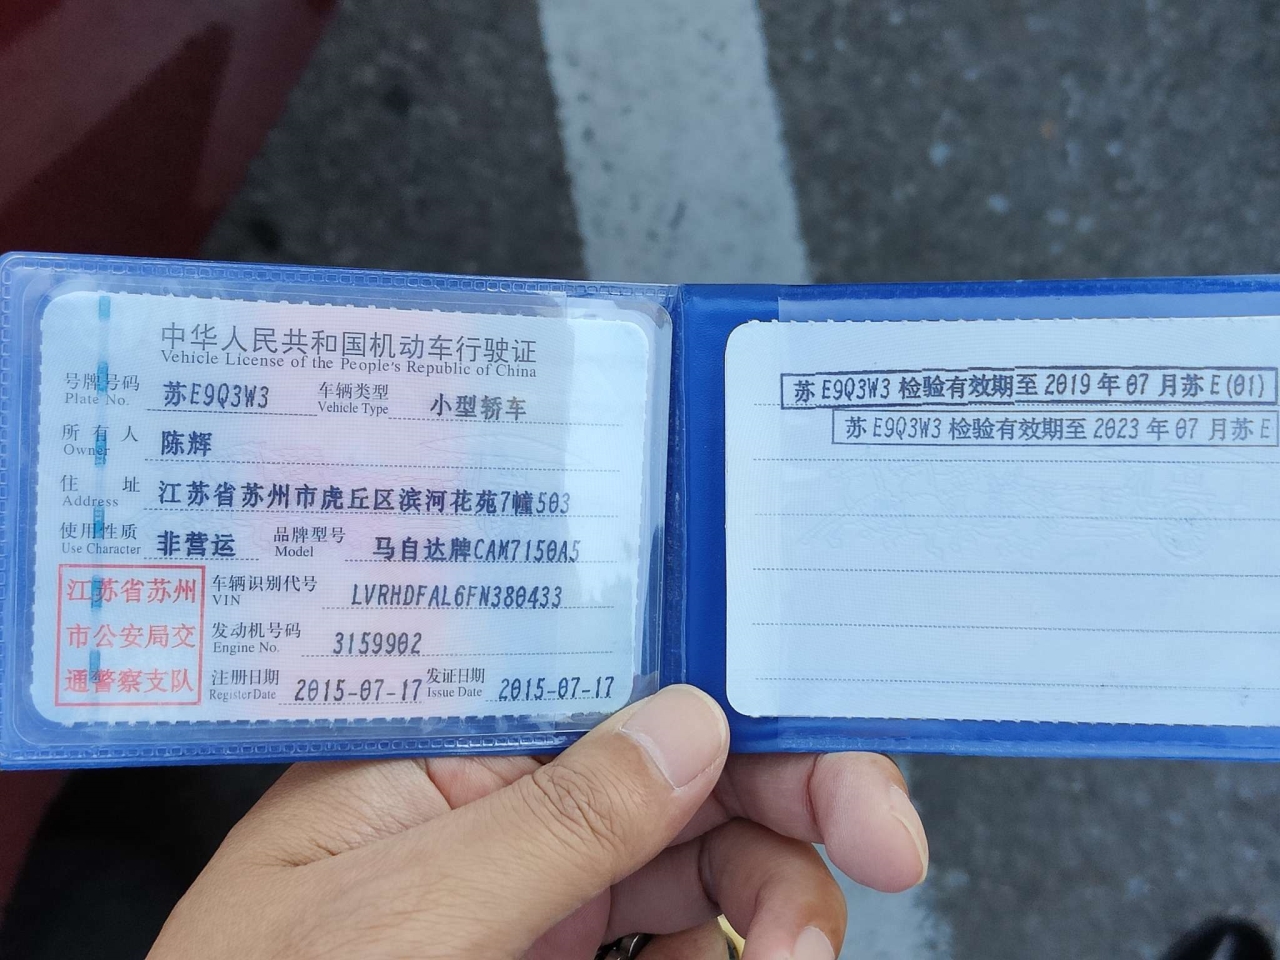 中华人民共和国机动车行驶证
Vehicle License of the People's Republic of China
号牌号码 苏E9Q3W3 车辆类型 小型轿车
Plate No. Vehicle Type
所有人 陈辉
Owner
住址 江苏省苏州市虎丘区滨河花苑7幢503
Address
使用性质 非营运 品牌型号 马自达牌CAM7150A5
Use Character Model
江苏省苏州
市公安局交
通警察支队
车辆识别代号 LVRHDFAL6FN380433
VIN
发动机号码 3159902
Engine No.
注册日期 2015-07-17 发证日期 2015-07-17
Register Date Issue Date
苏E9Q3W3 检验有效期至2019年07月苏E(01)
苏E9Q3W3 检验有效期至2023年07月苏E